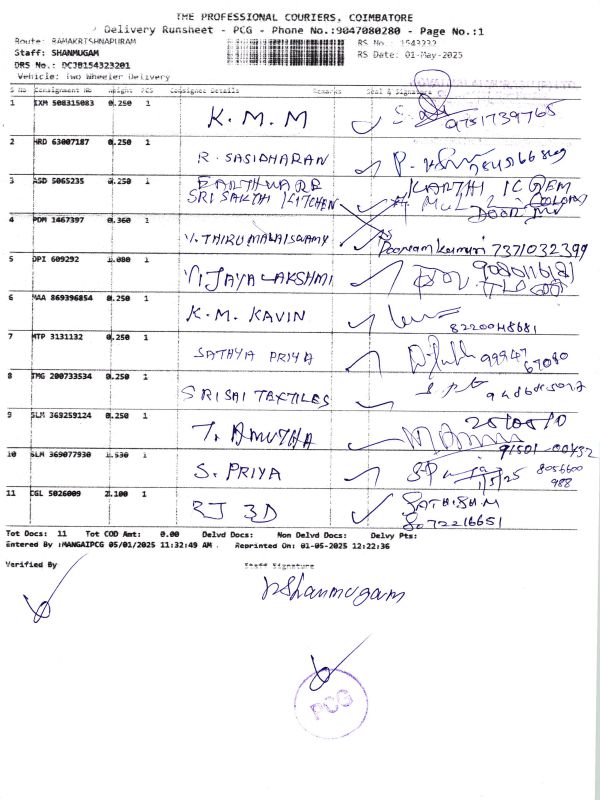 THE PROFESSIONAL COURIERS, COIMBATORE
Delivery Runsheet - PCG - Phone No.:9047080280 - Page No.:1
Route: RAMAKRISHNAPURAM RS No.: 1543232
Staff: SHANMUGAM RS Date: 01-May-2025
DRS No.: DCJ0154323201
Vehicle: Two Wheeler Delivery
S No Consignment No Weight PCS Consignee Details Remarks Seal & Signature
1 IXM 508315083 0.250 1 K. M. M 9751739765
2 HRD 63007187 0.250 1 R. SASIDHARAN
3 ASD 5065235 0.250 1 EARTHWARE KARTHI
SRI SAKTHI KITCHEN
4 PDM 1467397 0.360 1 V. THIRUMALAISWAMY Poonam kumari 7371032399
5 OPI 609292 1.080 1 VIJAYALAKSHMI
6 MAA 869396854 0.250 1 K. M. KAVIN 8220048681
7 MTP 3131132 0.250 1 SATHYA PRIYA 99947 67080
8 TMG 200733534 0.250 1 SRI SAI TEXTILES
9 SLM 369259124 0.250 1 T. AMUTHA 91501-00432
10 SLM 369077930 1.530 1 S. PRIYA 1/5/25 8056600
988
11 CGL 5026009 2.100 1 RJ 3D SATHISH.M
8072216651
Tot Docs: 11 Tot COD Amt: 0.00 Delvd Docs: Non Delvd Docs: Delvy Pts:
Entered By :MANGAIPCG 05/01/2025 11:32:49 AM . Reprinted On: 01-05-2025 12:22:36
Verified By Staff Signature
Shanmugam
PCG